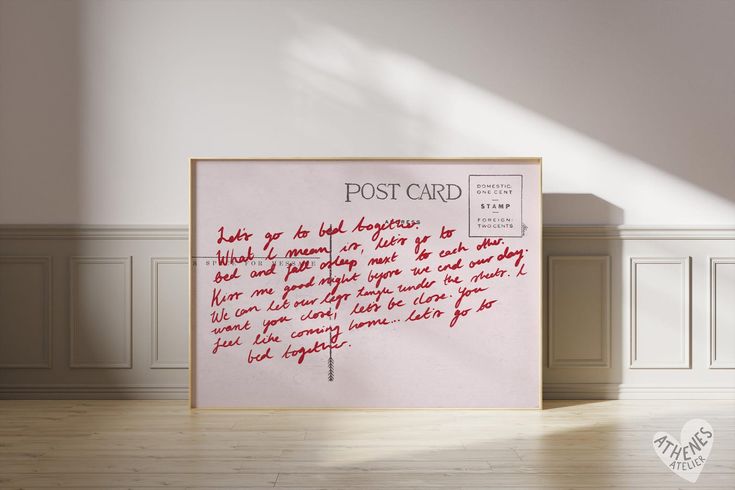 POST CARD
DOMESTIC.
ONE CENT
STAMP
FOREIGN:
TWO CENTS
ADDRESS
SPACE FOR MESSAGE
Let's go to bed together.
What I mean is, let's go to
bed and fall asleep next to each other.
Kiss me good night before we end our day.
We can let our legs tangle under the sheets. I
want you close, let's be close. You
feel like coming home... let's go to
bed together.
ATHENES
ATELIER